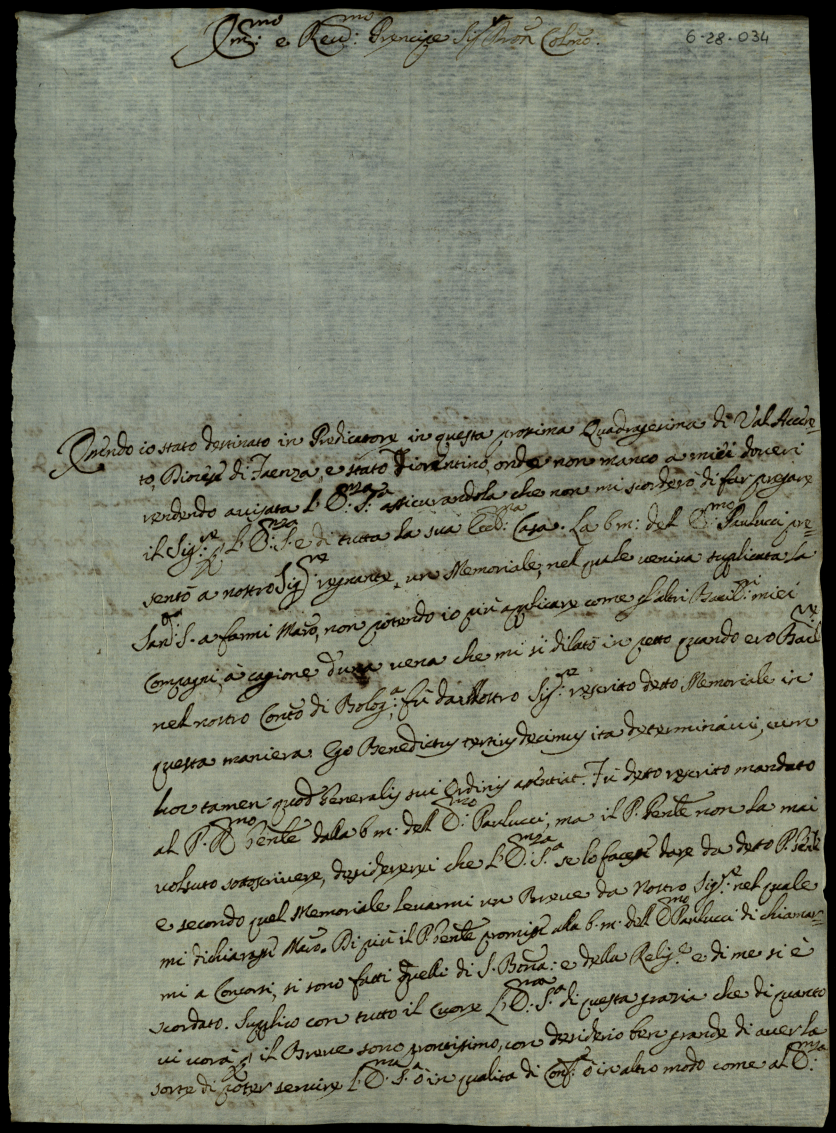 Em:mo e Rev:mo Prencipe Sig.r Pron Colmo.
6-28-034
Essendo io stato destinato in Predicatore in questa prossima Quadragesima di Val
to, Diocesi di Faenza, e stato Fiorentino, onde non manco a miei doveri
rendendo avvisata l'E:nza S.a assicurandola che non mi scorderò di far pregare
il Sig:re p l'E:nza S. e di tutta la sua Ecc:ma Casa. La b: m: del E:mo Paulucci pre=
sentò a nostro Sig:re regnante, un Memoriale, nel quale veniva suplicata la
San:tà S. a farmi Maro, non potendo io più applicare come gl'altri Bacil:ri miei
Compagni, à cagione d'una vena che mi si dilatò in petto quando ero Bacil:re
nel nostro Conto di Bolog:a, fù da Nostro Sig:re rescrito detto Memoriale in
questa maniera Ego Benedictus tertius decimus ita determinavi, cum
hoc tamen quod Generalis sui Ordinis assentiat. Fù deto rescrito mandato
al P. R:mo Genle dalla b: m: dell E:mo Paulucci, ma il P. Genle non la mai
volsuto sotoscrivere, desidererei che l'E:nza S.a se lo facesse dare da deto P. Genle
e secondo quel Memoriale levarmi un Breve da Nostro Sig:re nel quale
mi dichiarasse Maro. Di più il P. Genle promise alla b: m: dell E:mo Paulucci di chiamar=
mi a Concorsi, si sono fatti quelli di S. Bona: e della Relig:e e di me si è
scordato. Supplico con tutto il cuore l'E:nza S.a di questa grazia che di quanto
vi vorà p il Breve sono prontissimo, con desiderio ben grande di aver la
sorte di poter servire l'E:nza S.a ò in qualità di Conf:e ò in altro modo come al E:nza